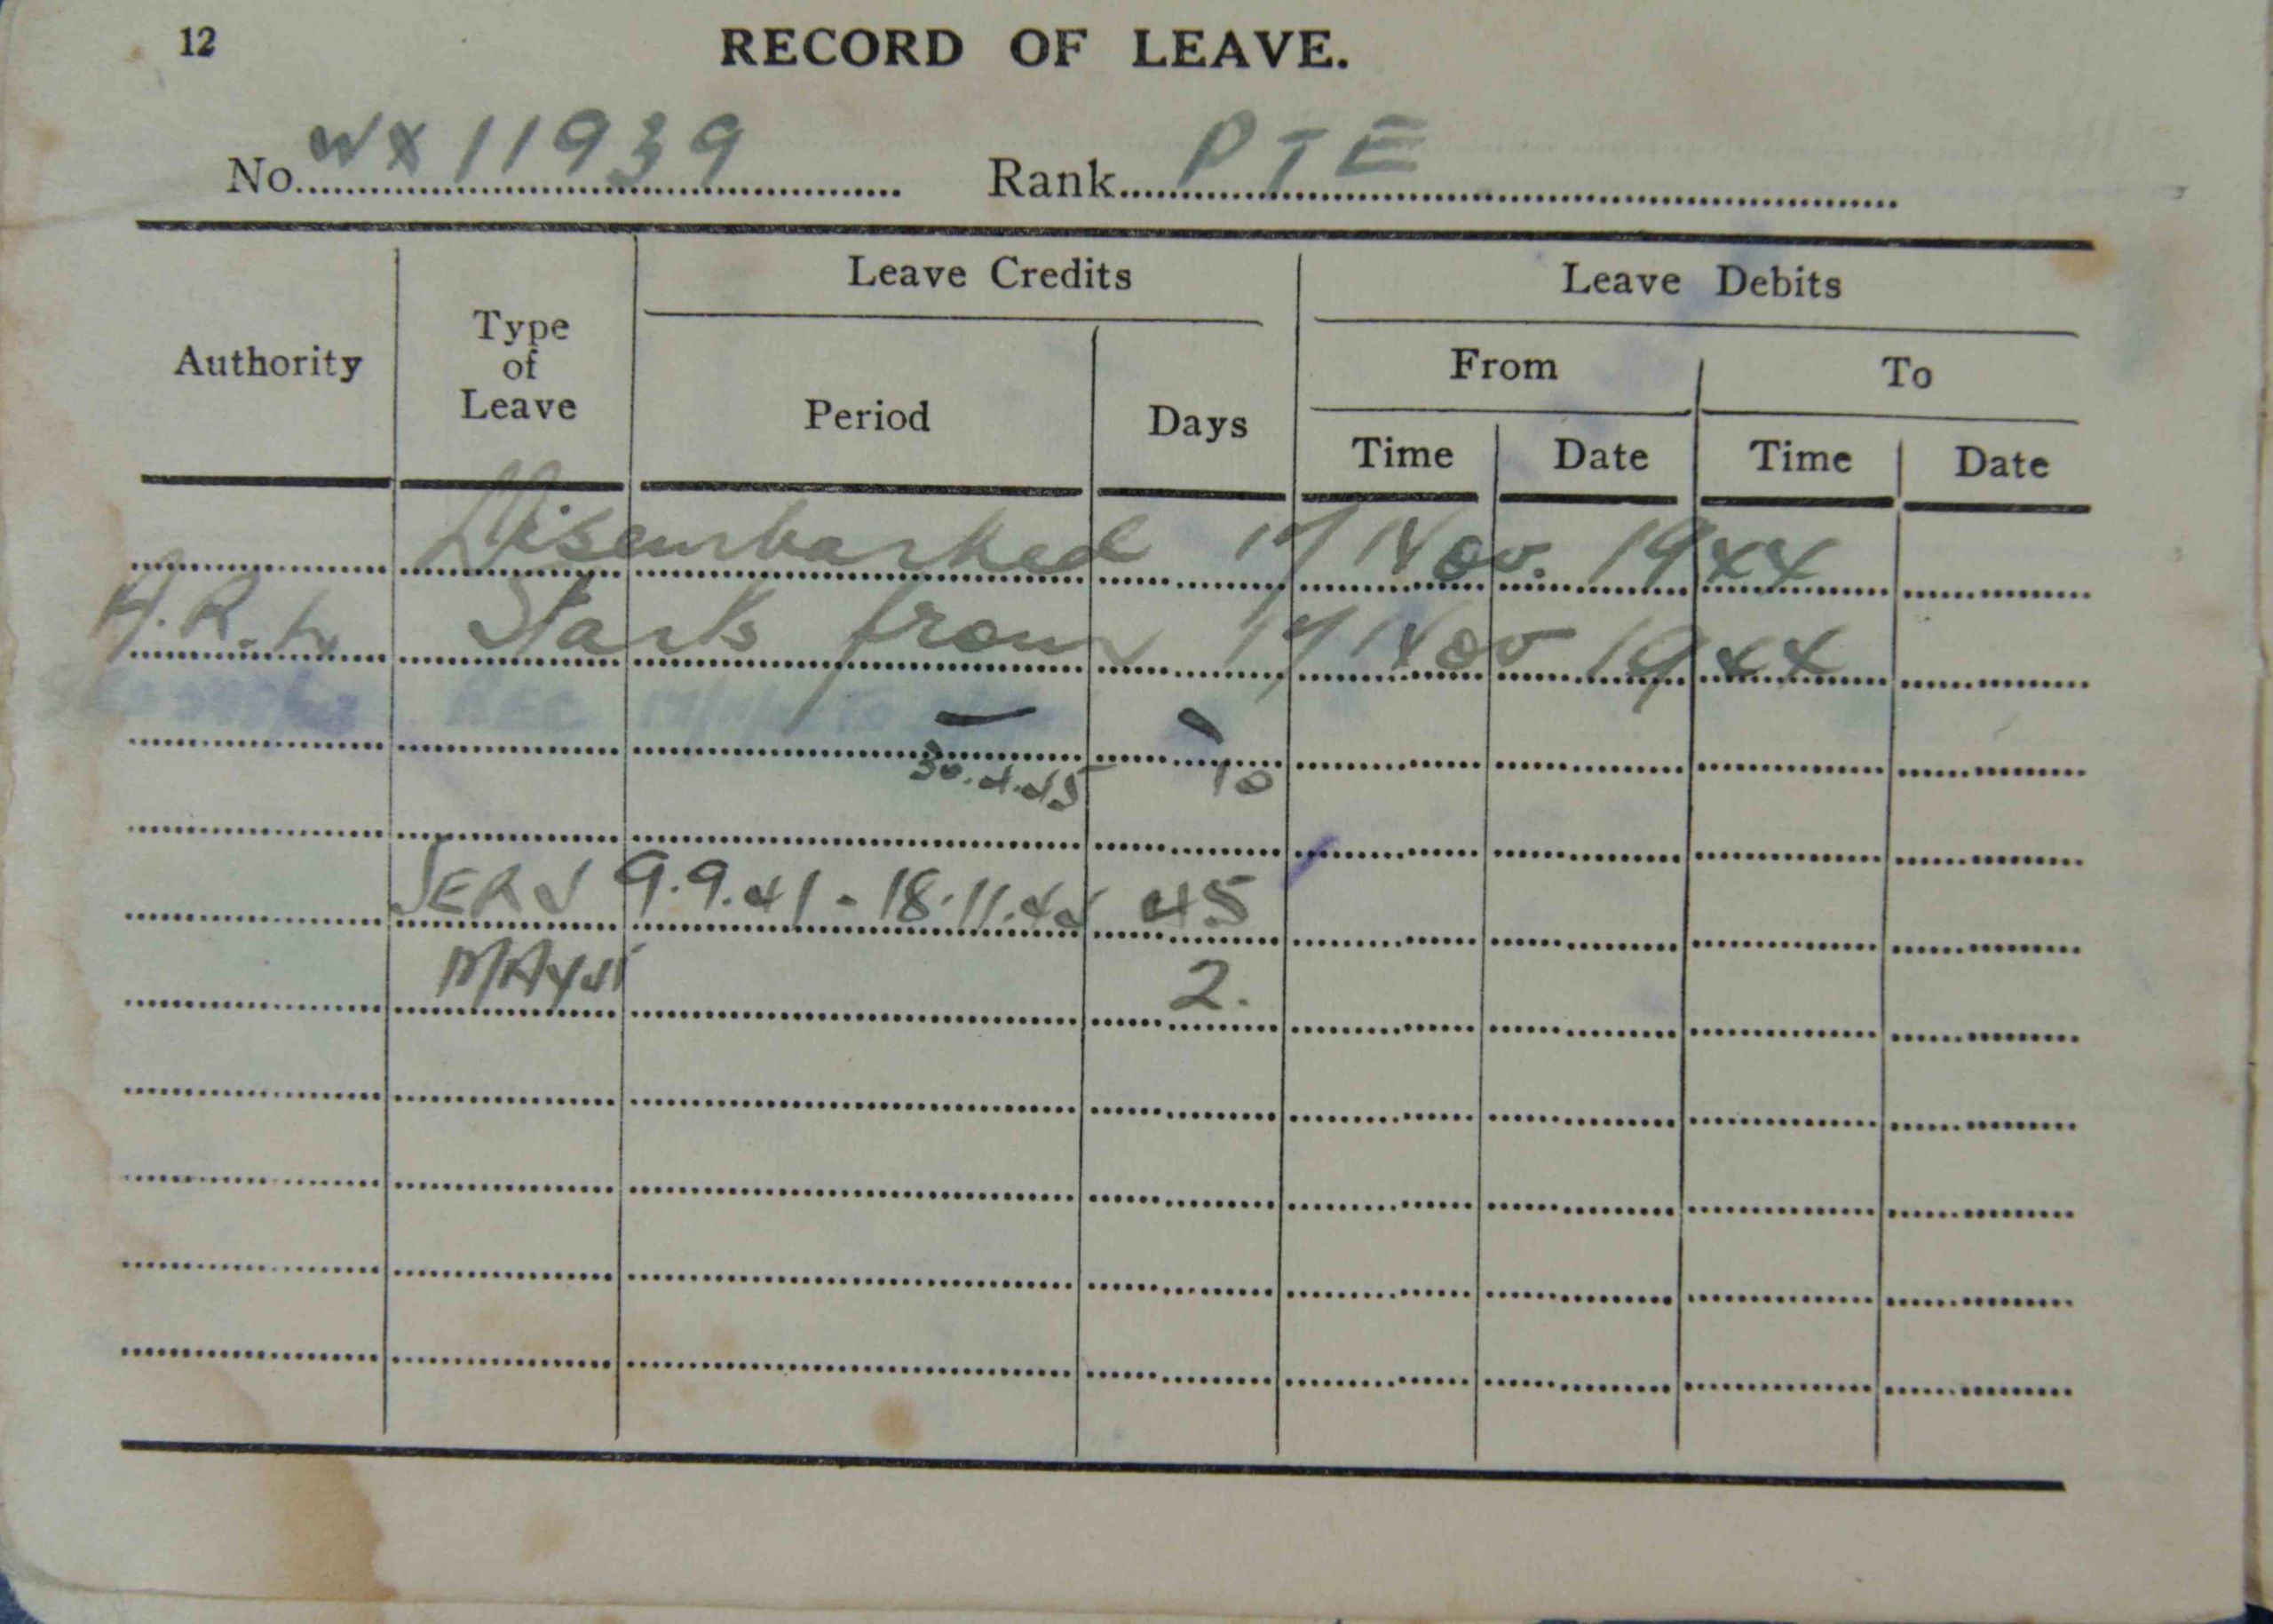 12
RECORD OF LEAVE.
No. WX 11939 Rank PTE
Authority Type of Leave Leave Credits Leave Debits
Period Days From To
Time Date Time Date
Disembarked 17 Nov. 1944
Starts from 17 Nov 1944
REC
30.4.45 10
SERV 9.9.41 - 18.11.44 45
MAY 45 2.